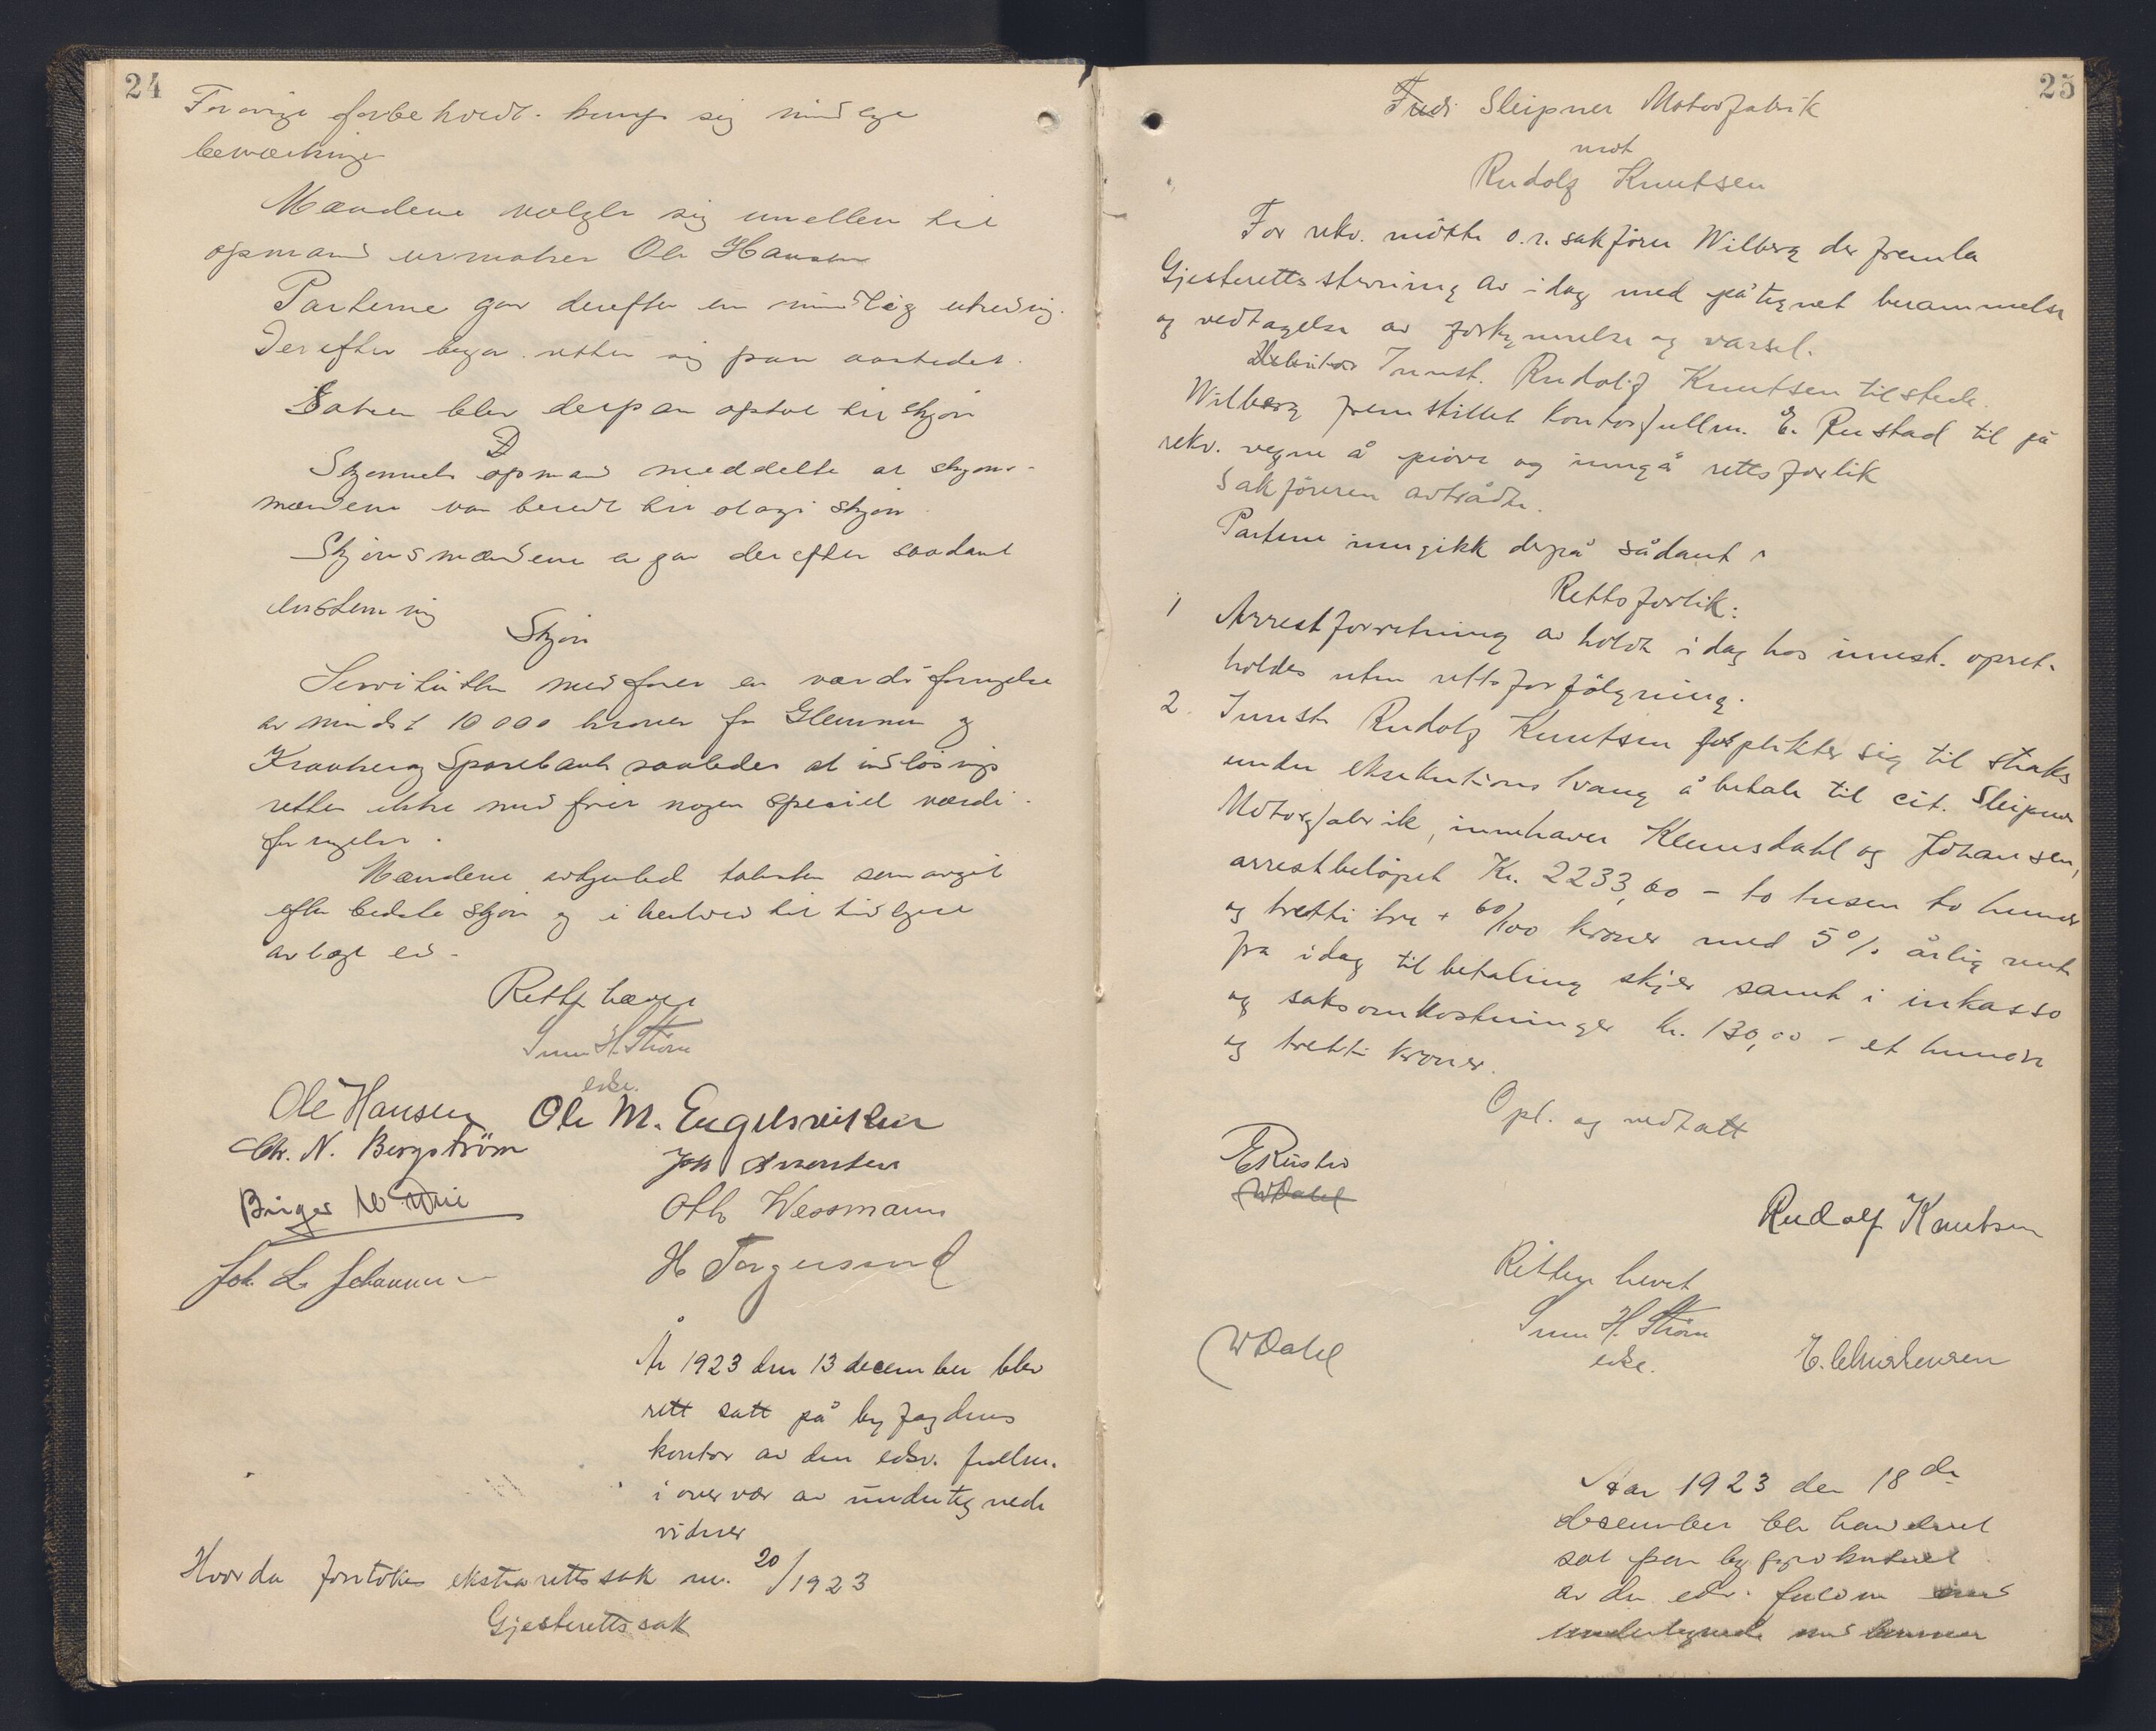 24
Forøvrig forbeholdt. hver sig mundlige
bemærkninger
Mændene valgte sig imellem til
opmand urmaker Ole Hansen
Parterne gav derefter en mundtlig utredning.
Derefter begav retten sig paa aastedet.
Saken blev derpaa optat til skjøn
Skjønnets opmand meddelte at skjøns-
mændene var beredt til at avgi skjøn
Skjønsmændene avgav derefter saadant
enstemmig
Skjøn
Servitutten medfører en værdiforringelse
av mindst 10 000 kroner for Glemmen og
Kraakerøy Sparebank saaledes at indløsnings
retten ikke medfører nogen speciel værdi-
forringelse.
Mændene avhjemlet taksten som avgit
efter bedste skjøn og i henhold til tidligere
avlagt ed.
Retten hævet
H. Strøm
edsv.
Ole Hansen Ole M. Engelsviken
Chr. N. Bergström
Joh Arnesen
Birger
Otto Wessmann
Joh. L. Johannesen
H Torgersen
År 1923 den 13 december blev
rett satt på byfogdens
kontor av den edsv. fullm.
i overvær av undertegnede
vidner
Hvorda foretokes ekstrarettssak nr. 20/1923
Gjesterettssak
25
Sleipner Motorfabrik
mot
Rudolf Knutsen
For rekv. møtte o.r. sakfører Wilberg der fremla
Gjesterettsstevning av idag med påtegnet berammelse
og vedtagelse av forkynnelse og varsel.
Innst. Rudolf Knutsen tilstede.
Wilberg fremstillet kontorfullm. E. Rustad til på
rekv. vegne å prøve og inngå rettsforlik
Sakføreren avtrådte.
Partene inngikk derpå sådant
Rettsforlik:
1 Arrestforretning avholdt idag hos innst. opret-
holdes uten rettsforfølgning.
2. Innst. Rudolf Knutsen forplikter sig til straks
under eksekutions tvang å betale til cit. Sleipner
Motorfabrik, innehaver Klemsdahl og Johansen,
arrestbeløpet Kr. 2233,60 - to tusen to hundre
og tretti tre + 60/100 kroner med 5% årlig rente
fra idag til betaling skjer samt i inkasso
og saksomkostninger kr. 130,00 - et hundre
og tretti kroner.
Opl. og vedtatt
E Rustad
WDahl
Rudolf Knutsen
Retten hevet
H. Strøm
edsv.
WDahl
E. Christensen
Aar 1923 den 18de
desember ble handelsret
sat paa byfogdkontoret
av den edsv. fuldm. med
undertegnede meddommere